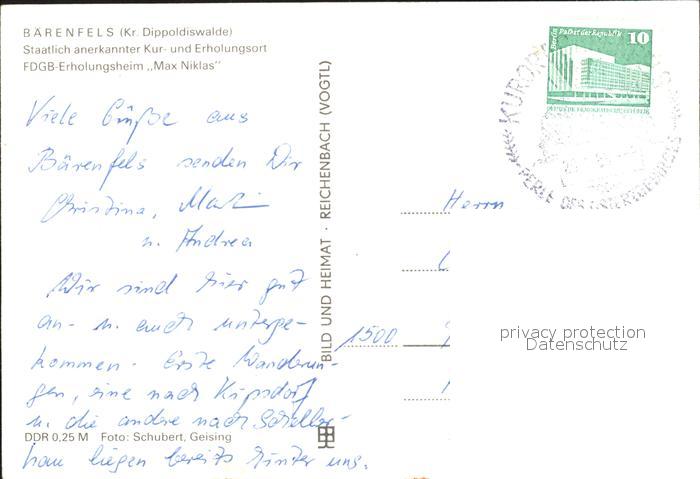 BÄRENFELS (Kr. Dippoldiswalde)
Staatlich anerkannter Kur- und Erholungsort
FDGB-Erholungsheim „Max Niklas"
Viele Grüße aus
Bärenfels senden Dir
Christina, Martin
u. Andrea
Wir sind hier gut
an- u. auch unterge-
kommen. Erste Wanderun-
gen, eine nach Kipsdorf
u. die andere nach Scheller-
hau liegen bereits hinter uns.
DDR 0,25 M Foto: Schubert, Geising
BILD UND HEIMAT · REICHENBACH (VOGTL)
Berlin Palast der Republik
10
KURORT
PERLE DES OSTERZGEBIRGES
Herrn
1500
privacy protection
Datenschutz